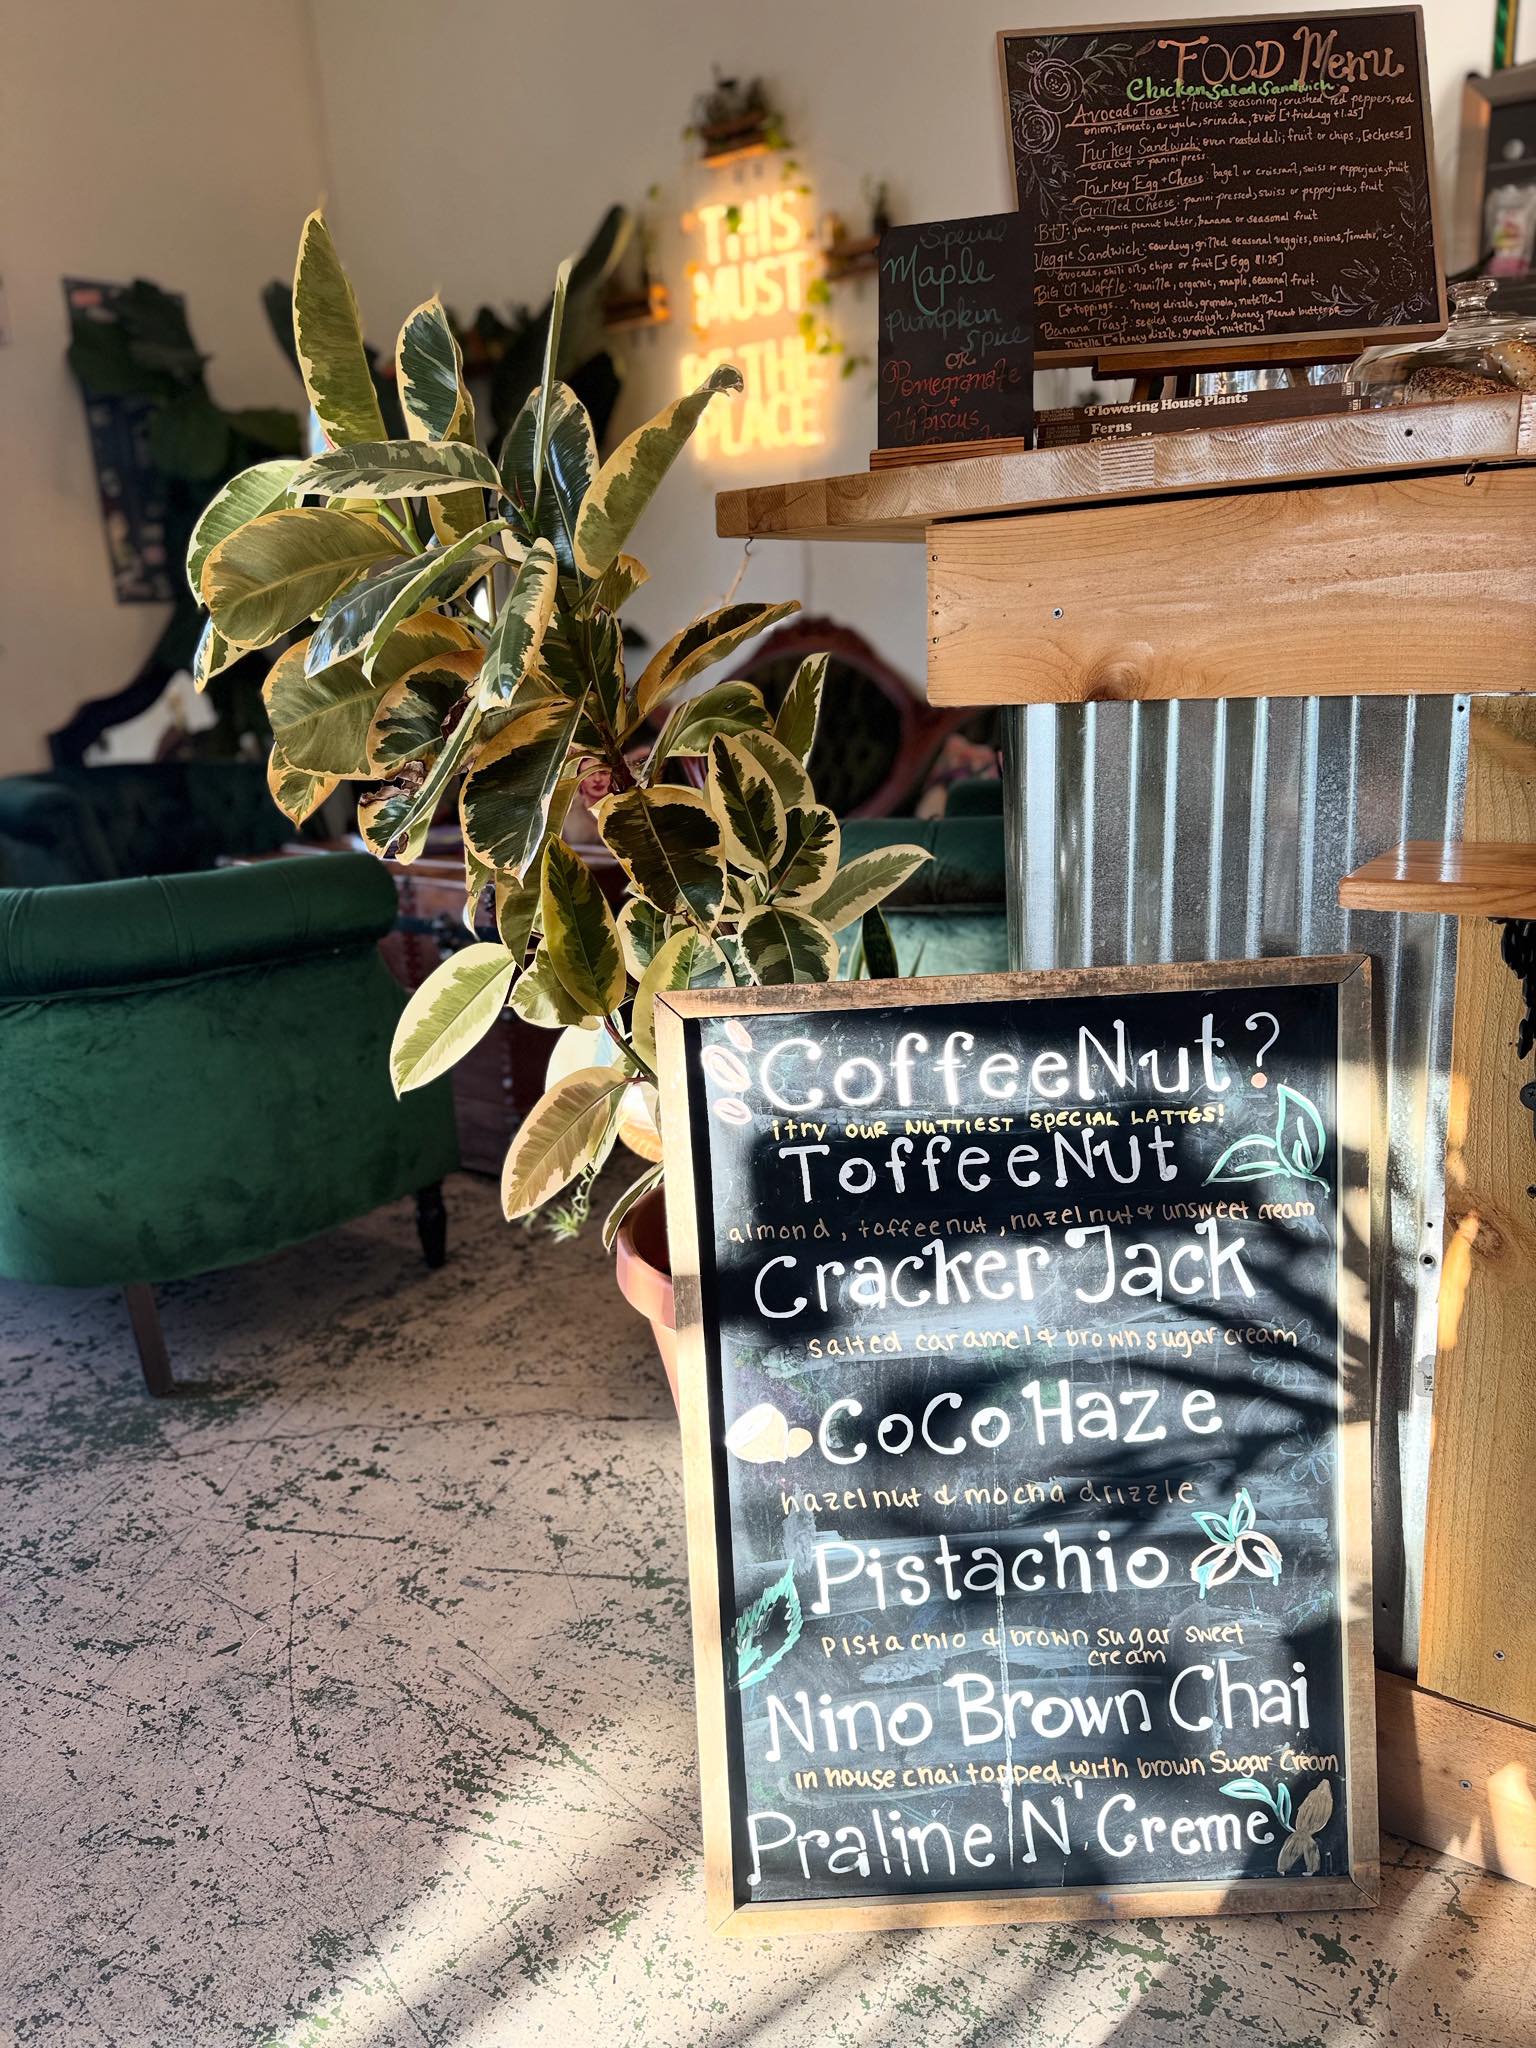 FOOD Menu
Chicken Salad Sandwich
Avocado Toast: house seasoning, crushed red peppers, red
onion, tomato, arugula, sriracha, EVOO [+ fried egg +1.25]
Turkey Sandwich: oven roasted deli, fruit or chips, [+cheese]
cold cut or panini press
Turkey Egg + Cheese: bagel or croissant, swiss or pepperjack, fruit
Grilled Cheese: panini pressed, swiss or pepperjack, fruit
B+J: jam, organic peanut butter, banana or seasonal fruit
Veggie Sandwich: sourdoug, grilled seasonal veggies, onions, tomatos,
avocado, chili oil, chips or fruit [+ Egg $1.25]
Big Ol Waffle: vanilla, organic, maple, seasonal fruit
[+ toppings... honey drizzle, granola, nutella]
Banana Toast: seeded sourdough, banana, peanut butter or
nutella [+ honey dizzle, granola, nutella]
Special
Maple
Pumpkin
Spice
OR
Pomegranate
+
Hibiscus
THIS
MUST
BE THE
PLACE
Flowering House Plants
Ferns
CoffeeNut?
¡try OUR NUTTIEST SPECIAL LATTES!
ToffeeNUt
almond, toffeenut, hazelnut & unsweet cream
Cracker Jack
salted caramel & brown sugar cream
CoCo Haze
hazelnut & mocha drizzle
Pistachio
pistachio & brown sugar sweet
cream
Nino Brown Chai
in house chai topped with brown Sugar Cream
Praline 'N' Creme